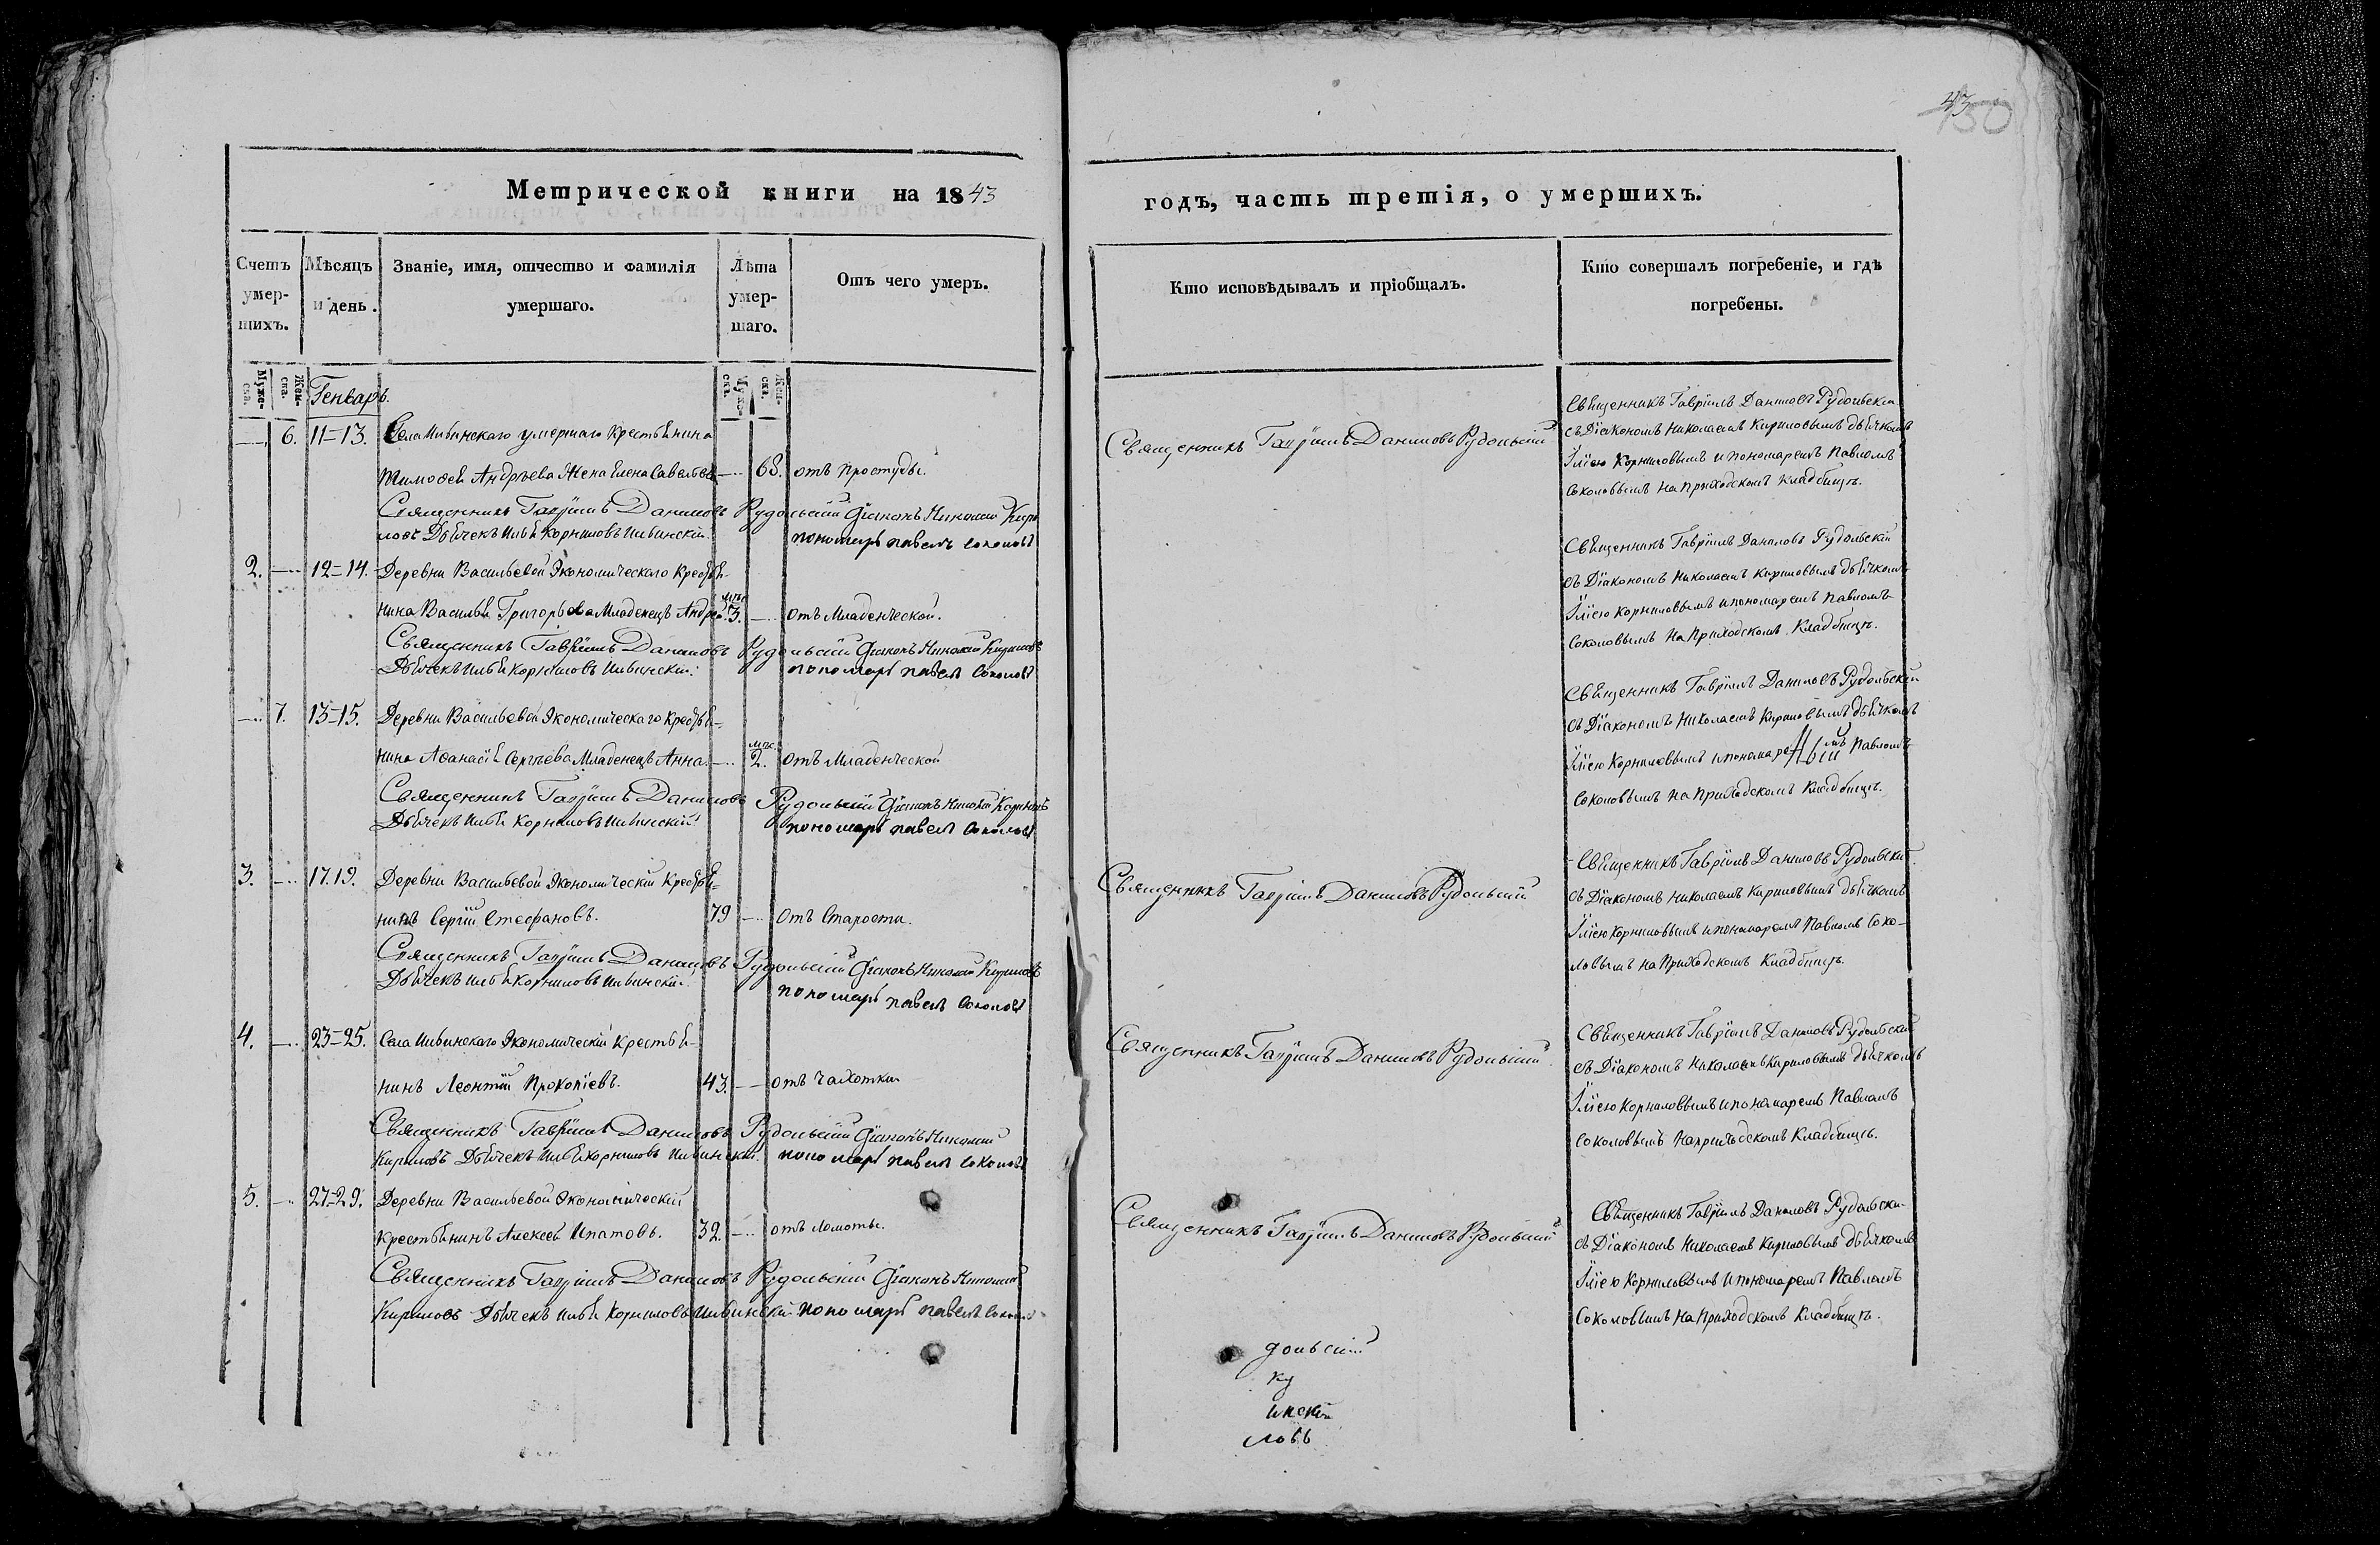 43
150
Метрической книги на 1843
годъ, часть третія, о умершихъ.
Счетъ умер-шихъ.
Мѣсяцъ и день.
Званіе, имя, отчество и фамилія умершаго.
Лѣта умер-шаго.
Отъ чего умеръ.
Кто исповѣдывалъ и пріобщалъ.
Кто совершалъ погребеніе, и гдѣ погребены.
Муже-ска.
Жен-ска.
Муже-ска.
Жен-ска.
Генварь.
— 6. 11=13. Села Ильинскаго умершаго Крестьянина
Тимофея Андрѣева Жена Елена Савельева — 68. отъ простуды.
Священникъ Гавріилъ Даниловъ Рудольскій Діаконъ Николай Кири
ловъ Дьячекъ Илья Корниловъ Ильинскій. пономарь павелъ соколовъ
Священникъ Гавріилъ Даниловъ Рудольскій
Священникъ Гавріилъ Даниловъ Рудольскій
съ Діакономъ Николаемъ Кириловымъ дьячкомъ
Іліею Корниловымъ и пономаремъ Павломъ
Соколовымъ на Приходскомъ Кладбищѣ.
2. — 12=14. Деревни Васильевой Экономическаго Крестья-
нина Василья Григорьева Младенецъ Андрей. мѣс. 3. — отъ Младенческой.
Священникъ Гавріилъ Даниловъ Рудольскій Діаконъ Николай Кириловъ
Дьячекъ Илья Корниловъ Ильинскій. пономарь павелъ соколовъ
Священникъ Гавріилъ Даниловъ Рудольскій
съ Діакономъ Николаемъ Кириловымъ дьячкомъ
Іліею Корниловымъ и пономаремъ Павломъ
Соколовымъ на Приходскомъ Кладбищѣ.
— 7. 13=15. Деревни Васильевой Экономическаго Крестья-
нина Афанасія Сергѣева Младенецъ Анна. — мѣс. 2. отъ Младенческой
Священникъ Гавріилъ Даниловъ Рудольскій Діаконъ Николай Кириловъ
Дьячекъ Илья Корниловъ Ильинскій. пономарь павелъ соколовъ
Священникъ Гавріилъ Даниловъ Рудольскій
съ Діакономъ Николаемъ Кириловымъ дьячкомъ
Іліею Корниловымъ и пономаремъ Павломъ
Соколовымъ на Приходскомъ Кладбищѣ.
3. — 17.19. Деревни Васильевой Экономическій Крестья-
нинъ Сергій Стефановъ. 79 — отъ Старости.
Священникъ Гавріилъ Даниловъ Рудольскій Діаконъ Николай Кириловъ
Дьячекъ Илья Корниловъ Ильинскій. пономарь павелъ соколовъ
Священникъ Гавріилъ Даниловъ Рудольскій
Священникъ Гавріилъ Даниловъ Рудольскій
съ Діакономъ Николаемъ Кириловымъ дьячкомъ
Іліею Корниловымъ и пономаремъ Павломъ Соко-
ловымъ на Приходскомъ Кладбищѣ.
4. — 23=25. Села Ильинскаго Экономическій Крестья-
нинъ Леонтій Прокопіевъ. 43. — отъ Чахотки
Священникъ Гавріилъ Даниловъ Рудольскій Діаконъ Николай
Кириловъ Дьячекъ Илья Корниловъ Ильинскій. пономарь павелъ соколовъ
Священникъ Гавріилъ Даниловъ Рудольскій
Священникъ Гавріилъ Даниловъ Рудольскій
съ Діакономъ Николаемъ Кириловымъ дьячкомъ
Іліею Корниловымъ и пономаремъ Павломъ
Соколовымъ на приходскомъ Кладбищѣ.
5. — 27=29. Деревни Васильевой Экономическій
Крестьянинъ Алексей Ипатовъ. 32. — отъ Ломоты.
Священникъ Гавріилъ Даниловъ Рудольскій Діаконъ Николай
Кириловъ Дьячекъ Илья Корниловъ Ильинскій. пономарь павелъ соколовъ
Священникъ Гавріилъ Даниловъ Рудольскій
Священникъ Гавріилъ Даниловъ Рудольскій
съ Діакономъ Николаемъ Кириловымъ дьячкомъ
Іліею Корниловымъ и пономаремъ Павломъ
Соколовымъ на Приходскомъ Кладбищѣ.
дольскій
ку
инскій
ловъ